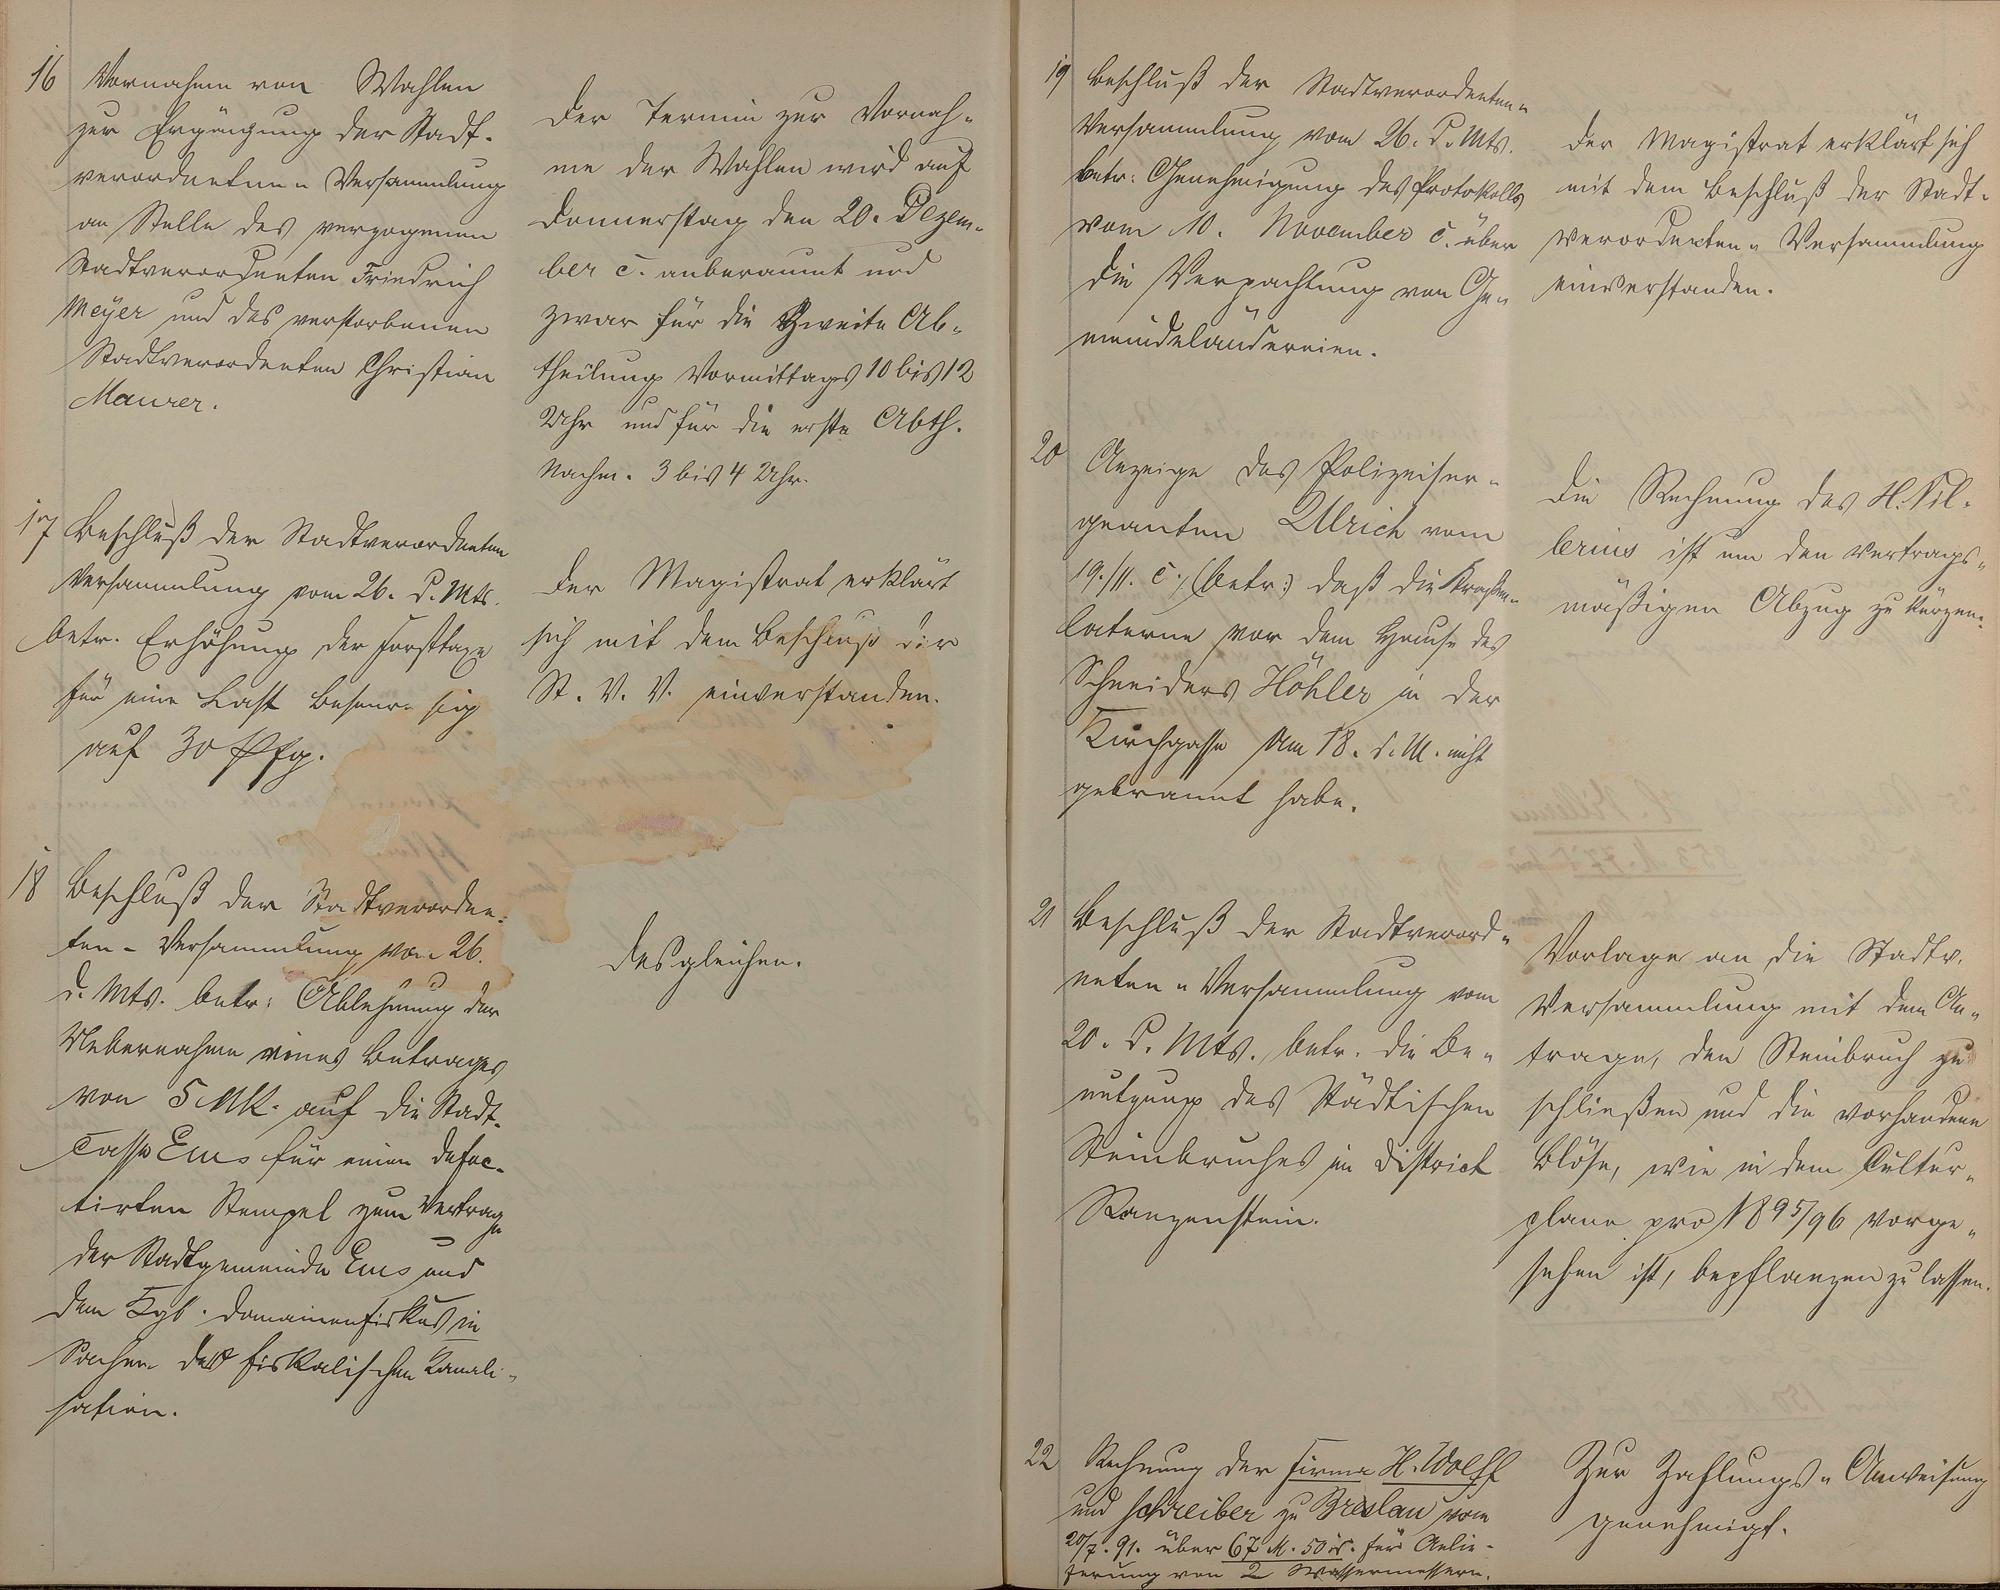 16 Vornahme von Wahlen
zur Ergänzung der Stadt-
verordneten-Versammlung
an Stelle des verzogenen
Stadtverordneten Friedrich
Meyer und des verstorbenen
Stadtverordneten Christian
Maurer.
Der Termin zur Vornah-
me der Wahlen wird auf
Donnerstag den 20. Dezem-
ber c. anberaumt und
zwar für die zweite Ab-
theilung Vormittags 10 bis 12
Uhr und für die erste Abth.
Nachm. 3 bis 4 Uhr.
17 Beschluß der Stadtverordneten
Versammlung vom 26. d. Mts.
betr. Erhöhung der Forsttaxe
für eine Last Besenreisig
auf 30 Pfg.
Der Magistrat erklärt
sich mit dem Beschluß der
St. V. V. einverstanden.
18 Beschluß der Stadtverordne-
ten-Versammlung vom 26.
d. Mts. betr. Ablehnung der
Uebernahme eines Betrages
von 5 Mk. auf die Stadt-
casse Ems für einen defec-
tirten Stempel zum Vertrage
der Stadtgemeinde Ems und
dem Kgl. Domainenfiskus in
Sachen der fiskalischen Kanali-
sation.
desgleichen.
19 Beschluß der Stadtverordneten-
Versammlung vom 26. d. Mts.
betr. Genehmigung des Protokolls
vom 10. November c. über
die Verpachtung von Ge-
meindeländereien.
Der Magistrat erklärt sich
mit dem Beschluß der Stadt-
verordneten-Versammlung
einverstanden.
20 Anzeige des Polizeiser-
geanten Ulrich vom
19./11. c., (betr:) daß die Straßen-
laterne vor dem Hause des
Schneiders Höhler in der
Kirchgasse am 18. d. M. nicht
gebrannt habe.
Die Rechnung des H. Vil-
lerius ist um den vertrags-
mäßigen Abzug zu kürzen.
21 Beschluß der Stadtverord-
neten-Versammlung vom
20. d. Mts. betr. die Be-
nutzung des Städtischen
Steinbruches im District
Ranzenstein.
Vorlage an die Stadtv.
Versammlung mit dem An-
trage, den Steinbruch zu
schließen und die vorhandene
Blöse, wie in dem Cultur-
plane pro 1895/96 vorge-
sehen ist, bepflanzen zu lassen.
22 Rechnung der Firma H. Wolff
und Schreiber zu Breslau vom
20/7. 91. über 67 M. 50 für Anlie-
ferung von 2 Wassermessern.
Zur Zahlungs-Anweisung
genehmigt.